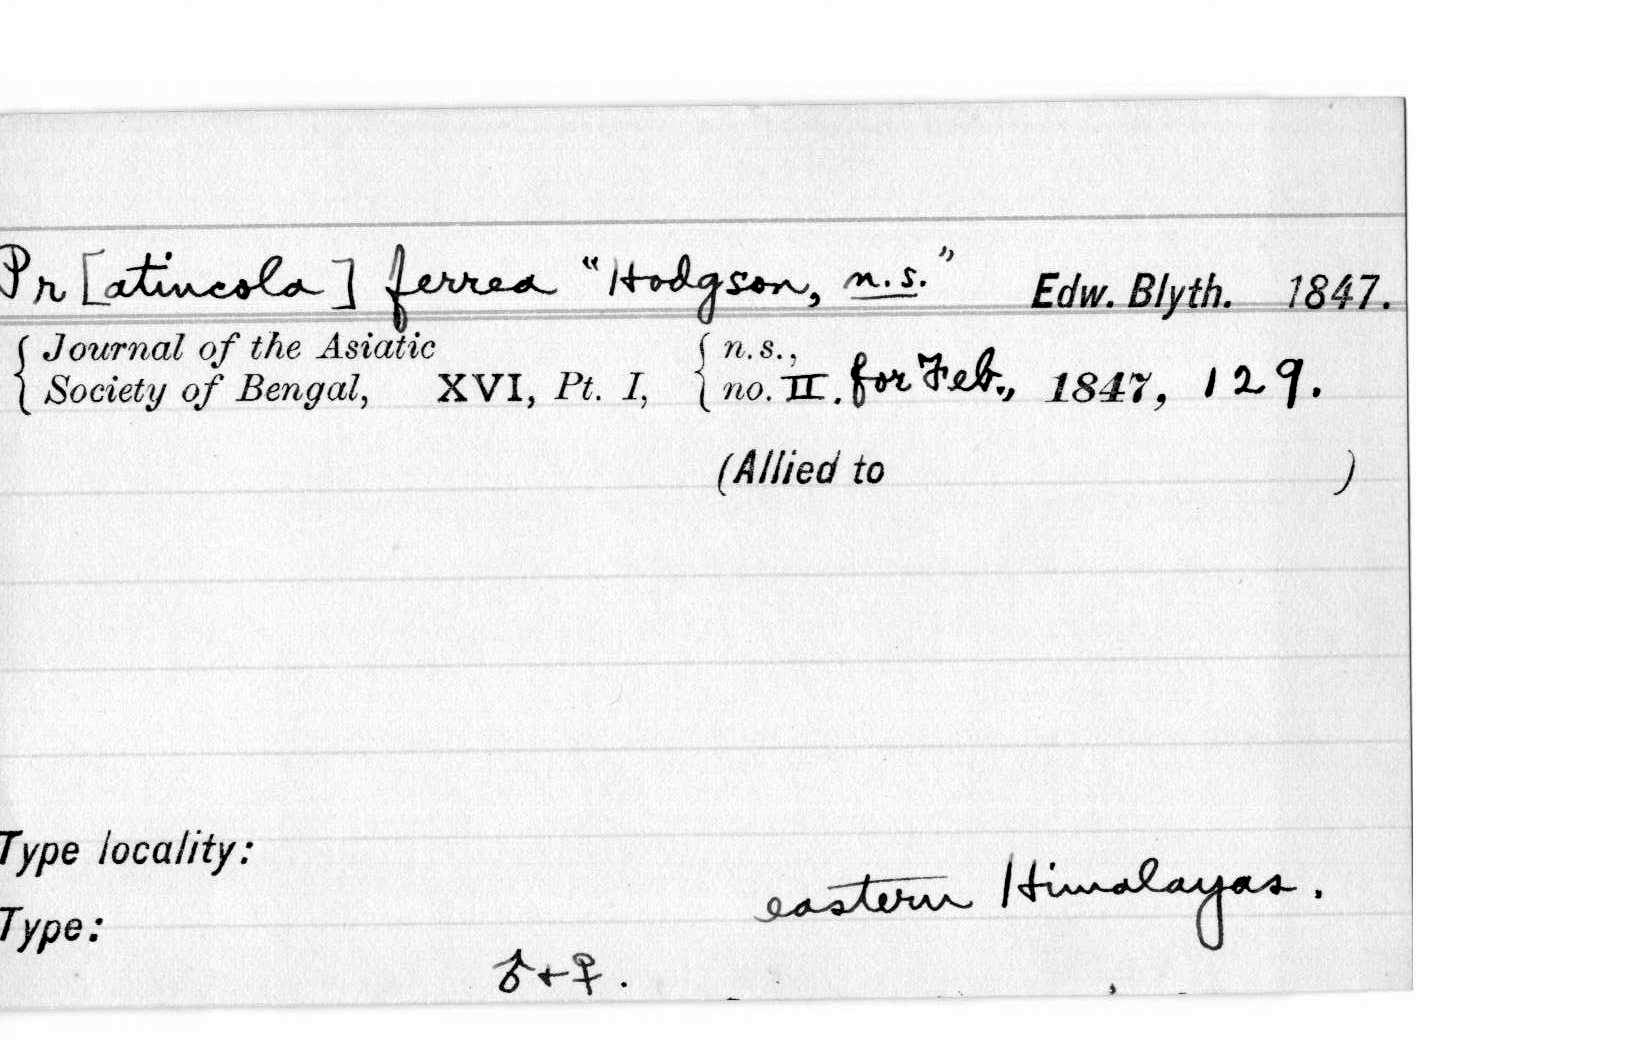 Pr [atincola] ferrea "Hodgson, n.s." Edw. Blyth. 1847.
{ Journal of the Asiatic { n.s.,
{ Society of Bengal, XVI, Pt. I, { no. II. for Feb., 1847, 129.
(Allied to )
Type locality:
eastern Himalayas.
Type:
♂ + ♀.